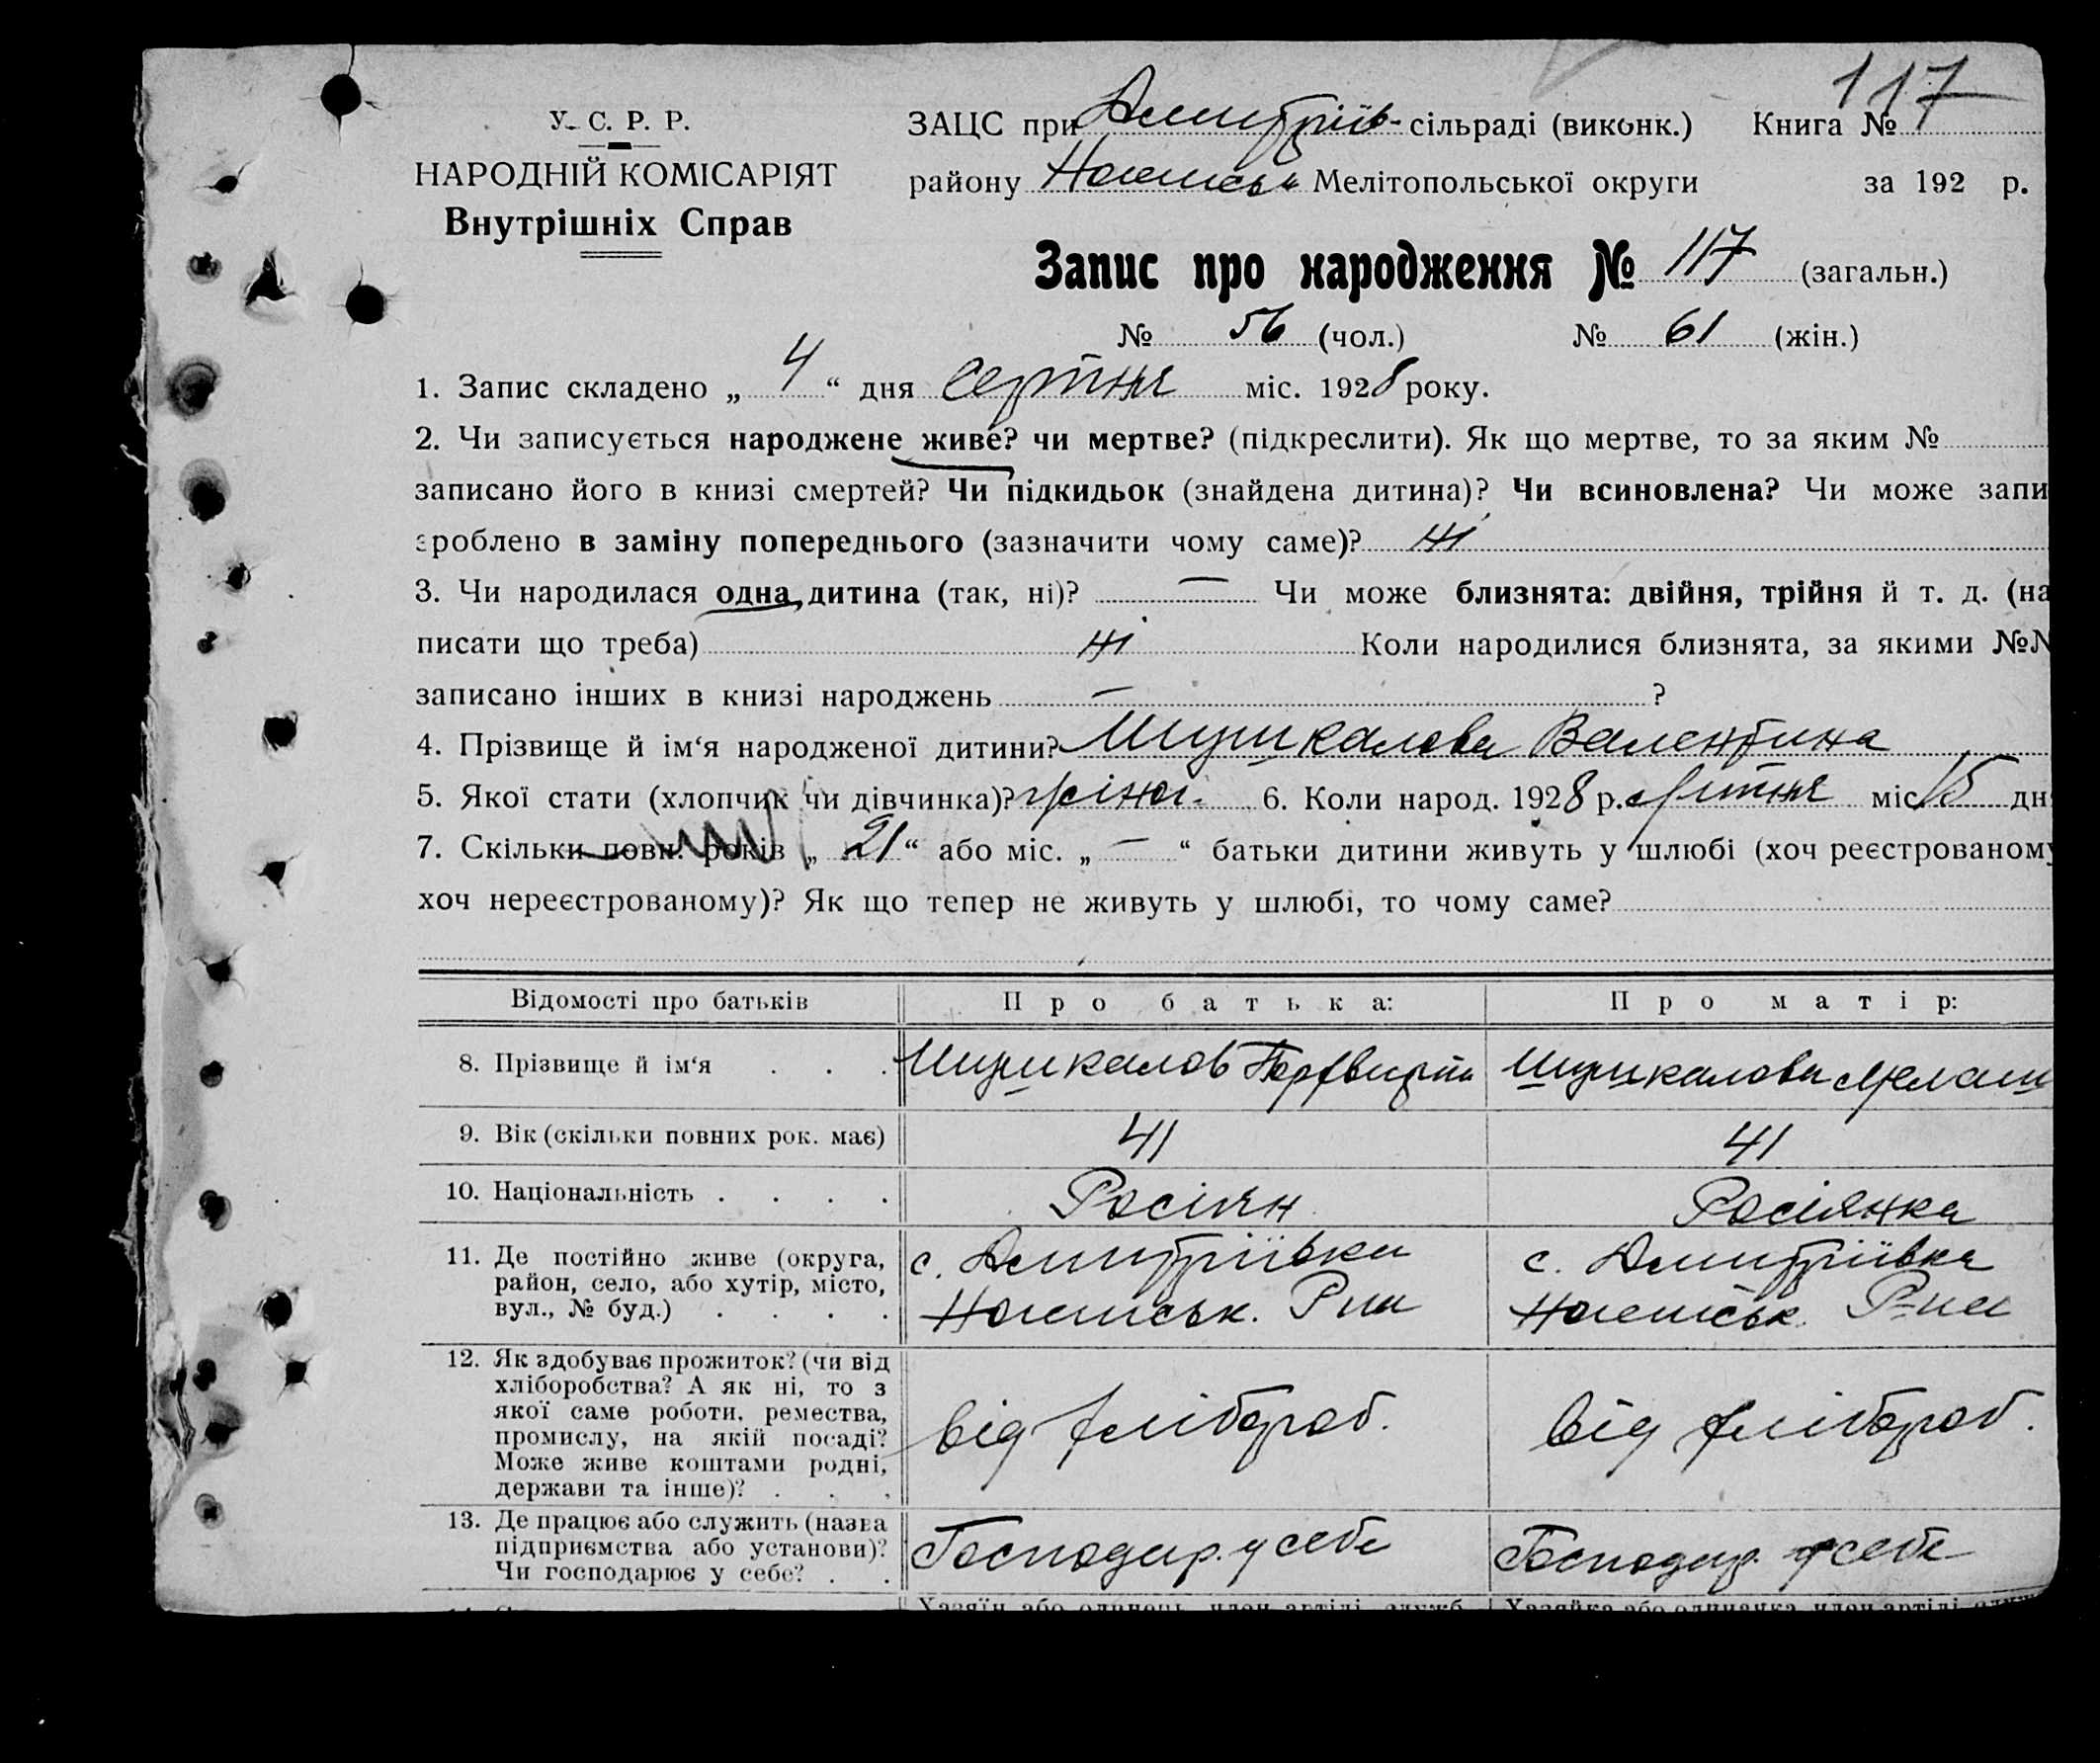 117
У. С. Р. Р.
НАРОДНІЙ КОМІСАРІЯТ
Внутрішніх Справ
ЗАЦС при Дмитріїв- сільраді (виконк.) Книга №
району Мелітопольської округи за 192 р.
Запис про народження № 117 (загальн.)
№ 56 (чол.) № 61 (жін.)
1. Запис складено „ 4 “ дня серпня міс. 1928 року.
2. Чи записується народжене живе? чи мертве? (підкреслити). Як що мертве, то за яким №
записано його в книзі смертей? Чи підкидьок (знайдена дитина)? Чи всиновлена? Чи може запи
зроблено в заміну попереднього (зазначити чому саме)? ні
3. Чи народилася одна дитина (так, ні)? — Чи може близнята: двійня, трійня й т. д. (на
писати що треба) ні Коли народилися близнята, за якими №№
записано інших в книзі народжень — ?
4. Прізвище й ім‘я народженої дитини? Шушкалова Валентина
5. Якої стати (хлопчик чи дівчинка)? жіноч. 6. Коли народ. 1928 р. міс. 15 дн
7. Скільки повн. років „ 21 “ або міс. „ — “ батьки дитини живуть у шлюбі (хоч реєстрованому
хоч нереєстрованому)? Як що тепер не живуть у шлюбі, то чому саме?
Відомості про батьків Про батька: Про матір:
8. Прізвище й ім‘я . . . Шушкалов Шушкалова
9. Вік (скільки повних рок. має) 41 41
10. Національність . . . . Росіян Росіянка
11. Де постійно живе (округа, район, село, або хутір, місто, вул., № буд.) . . . .
с. Дмитріївка с. Дмитріївка
Р-на Р-на
12. Як здобуває прожиток? (чи від хліборобства? А як ні, то з якої саме роботи, ремества, промислу, на якій посаді? Може живе коштами родні, держави та інше)? . . .
від хлібороб. від хлібороб.
13. Де працює або служить (назва підприємства або установи)? Чи господарює у себе? . .
Господар. у себе Господар. у себе
Хазяїн або одинець, член артілі, служб. Хазяйка або одиначка, член артілі,